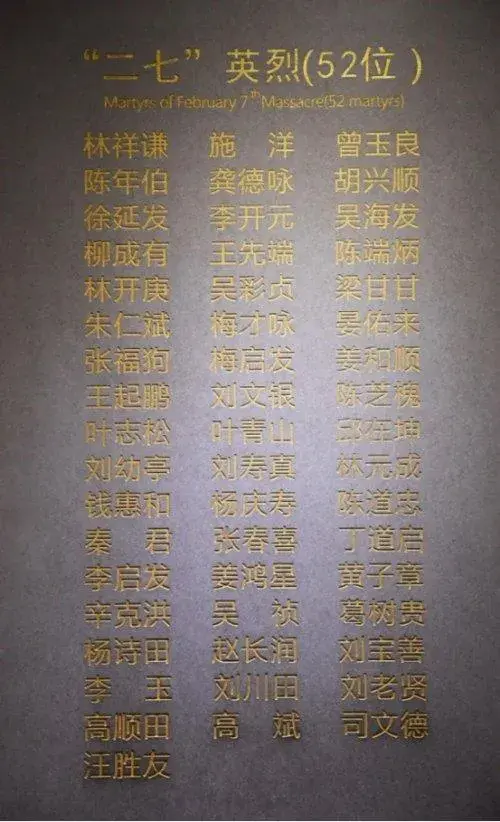 “二七”英烈(52位)
Martyrs of February 7th Massacre(52 martyrs)
林祥谦 施 洋 曾玉良
陈年伯 龚德咏 胡兴顺
徐延发 李开元 吴海发
柳成有 王先端 陈端炳
林开庚 吴彩贞 梁甘甘
朱仁斌 梅才咏 晏佑来
张福狗 梅启发 姜和顺
王起鹏 刘文银 陈芝槐
叶志松 叶青山 邱在坤
刘幼亭 刘寿真 林元成
钱惠和 杨庆寿 陈道忠
秦 君 张春喜 丁道启
李启发 姜鸿星 黄子章
辛克洪 吴 祯 葛树贵
杨诗田 赵长润 刘宝善
李 玉 刘川田 刘老贤
高顺田 高 斌 司文德
汪胜友